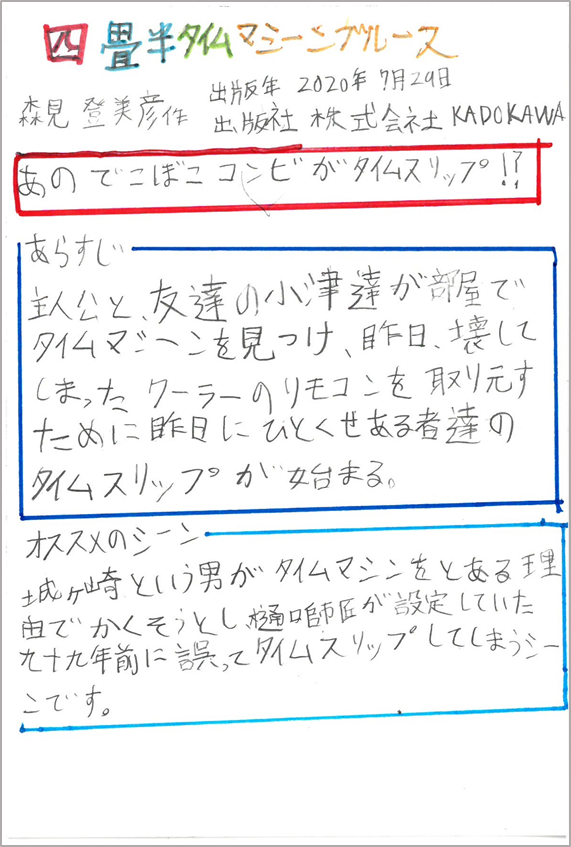 四畳半タイムマシーンブルース
出版年 2020年 7月29日
森見 登美彦作 出版社 株式会社 KADOKAWA
あのでこぼこコンビがタイムスリップ!?
あらすじ
主人公と、友達の小津達が部屋で
タイムマシーンを見つけ、昨日、壊して
しまったクーラーのリモコンを取り元す
ために昨日にひとくせある者達の
タイムスリップが始まる。
オススメのシーン
城ヶ崎という男がタイムマシンをとある理
由でかくそうとし樋口師匠が設定していた
九十九年前に誤ってタイムスリップしてしまうシー
ンです。